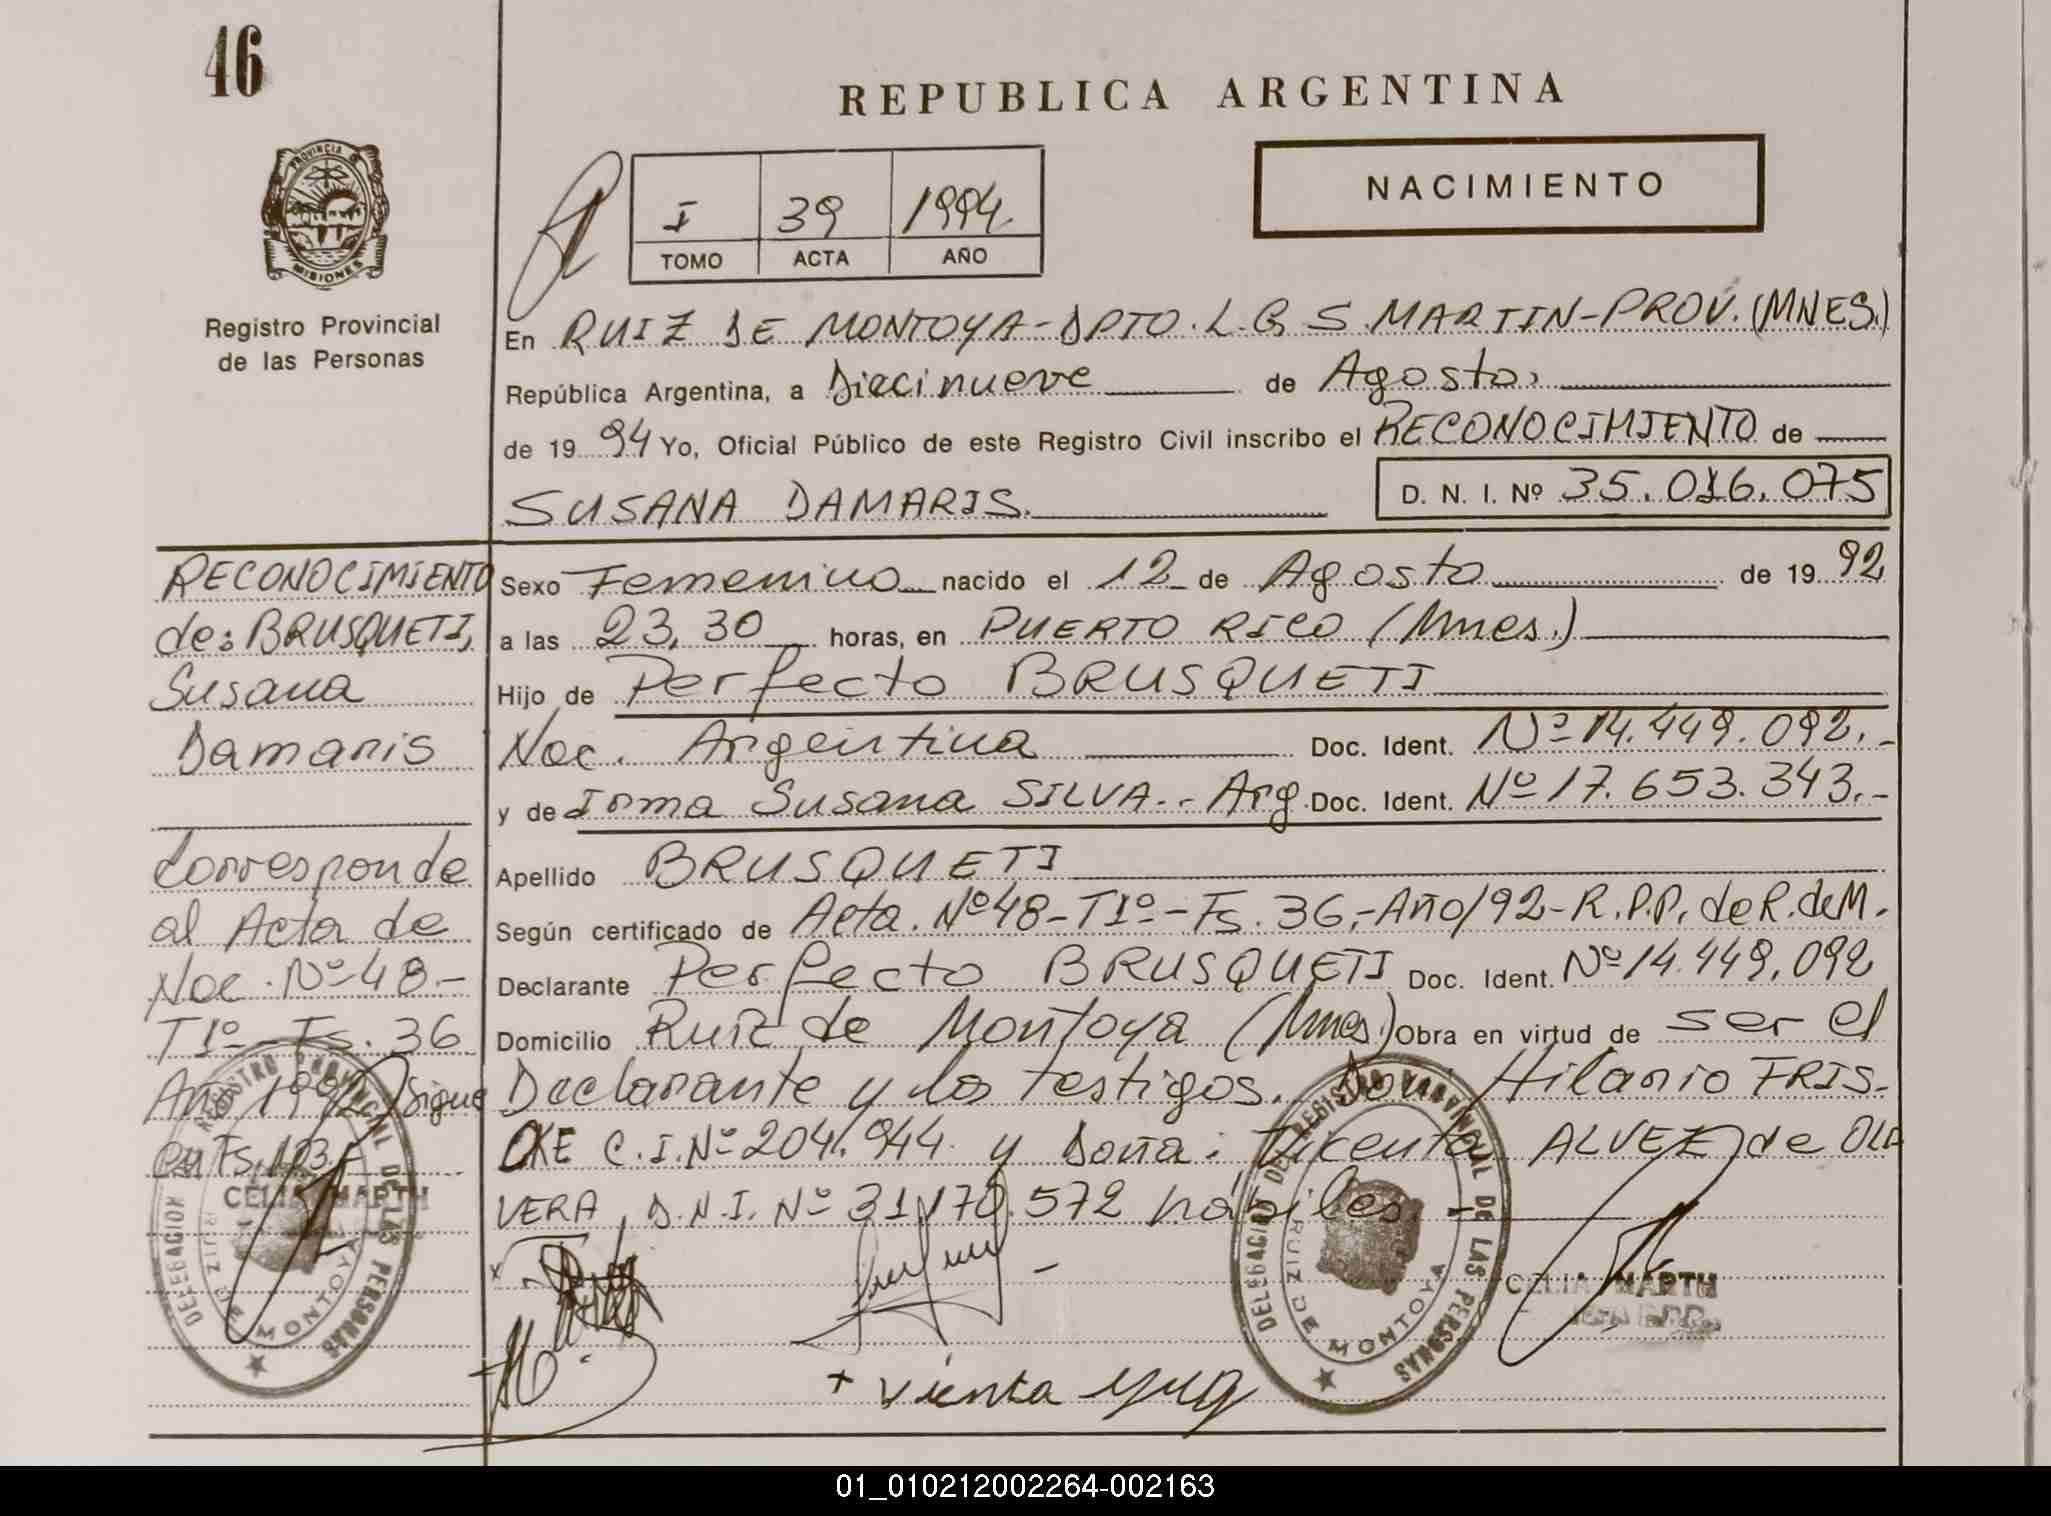 46
REPUBLICA ARGENTINA
PROVINCIA DE
MISIONES
Registro Provincial
de las Personas
I 39 1994.
TOMO ACTA AÑO
NACIMIENTO
En RUIZ DE MONTOYA-DPTO. L.G.S.MARTIN-PROV.(MNES.)
República Argentina, a Diecinueve de Agosto.
de 19 94 Yo, Oficial Público de este Registro Civil inscribo el RECONOCIMIENTO de
SUSANA DAMARIS. D. N. I. Nº 35.016.075
RECONOCIMIENTO
de: BRUSQUETI,
Susana
Damaris
Corresponde
al Acta de
Nac. Nº 48.-
T1º - Fs. 36
Año 1992 Sigue
en Fs.
CELIA MARTH
DELEGACION DE REGISTRO PROVINCIAL DE LAS PERSONAS
RUIZ DE MONTOYA
Sexo Femenino nacido el 12 de Agosto de 19 92
a las 23,30 horas, en PUERTO RICO (Mnes.)
Hijo de Perfecto BRUSQUETI
Nac. Argentina Doc. Ident. Nº 14.449.092.-
y de Irma Susana SILVA.- Arg. Doc. Ident. Nº 17.653.343.-
Apellido BRUSQUETI
Según certificado de Acta. Nº48-T1º-Fs.36,-Año/92-R.P.P. de R. de M.
Declarante Perfecto BRUSQUETI Doc. Ident. Nº 14.449.092
Domicilio Ruiz de Montoya (Mnes.) Obra en virtud de ser el
Declarante y los testigos. Don: Hilario FRIS-
KE C.I.Nº 204.944. y Doña: Vicenta ALVEZ de OLI
VERA, D.N.I. Nº 31.170.572 hábiles.-
DELEGACION DE REGISTRO PROVINCIAL DE LAS PERSONAS
RUIZ DE MONTOYA
CELIA MARTH
+ vienta
01_010212002264-002163